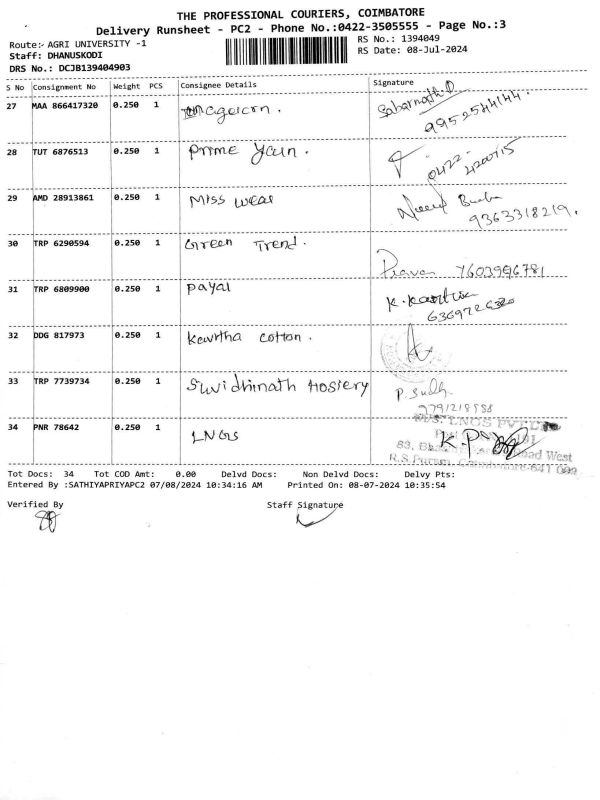 THE PROFESSIONAL COURIERS, COIMBATORE
Delivery Runsheet - PC2 - Phone No.:0422-3505555 - Page No.:3
Route:- AGRI UNIVERSITY -1
RS No.: 1394049
Staff: DHANUSKODI
RS Date: 08-Jul-2024
DRS No.: DCJB139404903
S No Consignment No Weight PCS Consignee Details Signature
27 MAA 866417320 0.250 1 Sabarnath.D
9952544144.
28 TUT 6876513 0.250 1 Prime Yarn.
0422-
4200715
29 AMD 28913861 0.250 1 Miss wear
9363318219.
30 TRP 6290594 0.250 1 Green Trend.
Pravan 7603996781
31 TRP 6809900 0.250 1 payal K.Karthik
32 DDG 817973 0.250 1 cotton.
33 TRP 7739734 0.250 1 Suvidhinath Hosiery P.Sudh
34 PNR 78642 0.250 1 LNGS K.P
M/S. LNGS PVT LTD
83, Road West
R.S.Puram, Coimbatore-641 002
Tot Docs: 34 Tot COD Amt: 0.00 Delvd Docs: Non Delvd Docs: Delvy Pts:
Entered By :SATHIYAPRIYAPC2 07/08/2024 10:34:16 AM Printed On: 08-07-2024 10:35:54
Verified By Staff Signature